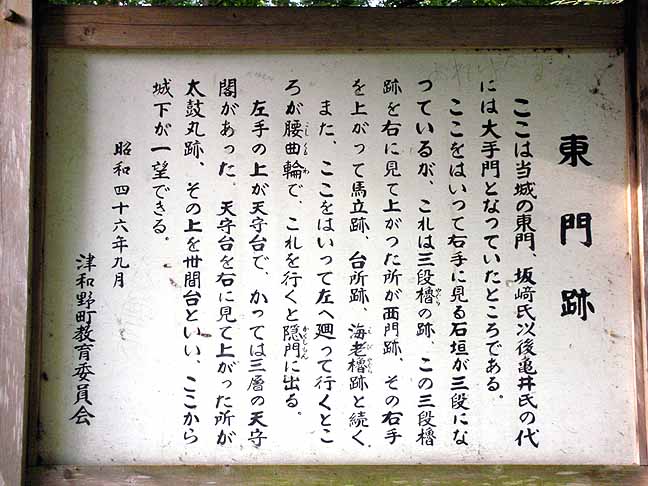 東門跡
ここは当城の東門、坂﨑氏以後亀井氏の代
には大手門となっていたところである。
ここをはいって右手に見る石垣が三段にな
っているが、これは三段櫓の跡、この三段櫓
跡を右に見て上がった所が西門跡、その右手
を上がって馬立跡、台所跡、海老櫓跡と続く
また、ここをはいって左へ廻って行くとこ
ろが腰曲輪で、これを行くと隠門に出る。
左手の上が天守台で、かつては三層の天守
閣があった。天守台を右に見て上がった所が
太鼓丸跡、その上を世間台といい、ここから
城下が一望できる。
昭和四十六年九月
津和野町教育委員会